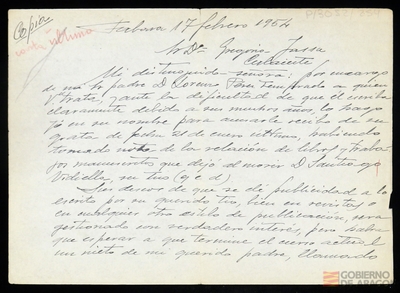 Copia
Fabara 17 febrero 1954
Sr Dª Gregorio Jassa
Calaceite
Mi distinguida señora: por encargo
de mi padre D Lorenzo Pérez Temprado a quien
V trata, y ante la dificultad de que él escriba
claramente debido a sus muchos años lo hago
yo en su nombre para acusarle recibo de su
grata de fecha 21 de enero último, habiendo
tomado nota de la relación de libros y traba
jos manuscritos que dejó al morir D Santiago
Vidiella, su tío (q e d)
Sus deseos de que se dé publicidad a lo
escrito por su querido tío, bien en revistas o
en cualquier otro estilo de publicación, será
gestionado con verdadero interés, pero habrá
que esperar a que termine el curso actual
un nieto de mi querido padre, llamado
GOBIERNO
DE ARAGON